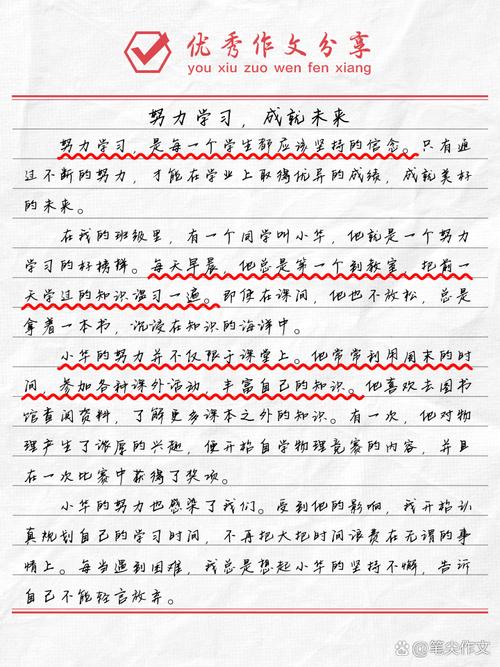 优秀作文分享
you xiu zuo wen fen xiang
努力学习，成就未来
努力学习，是每一个学生都应该坚持的信念。只有通
过不断的努力，才能在学业上取得优异的成绩，成就美好
的未来。
在我的班级里，有一个同学叫小华，他就是一个努力
学习的好榜样。每天早晨，他总是第一个到教室，把前一
天学过的知识温习一遍。即使在课间，他也不放松，总是
拿着一本书，沉浸在知识的海洋中。
小华的努力并不仅限于课堂上。他常常利用周末的时
间，参加各种课外活动，丰富自己的知识。他喜欢去图书
馆查阅资料，了解更多课本之外的知识。有一次，他对物
理产生了浓厚的兴趣，便开始自学物理竞赛的内容，并且
在一次比赛中获得了奖项。
小华的努力也感染了我们。受到他的影响，我开始认
真规划自己的学习时间，不再把大把时间浪费在无谓的事
情上。每当遇到困难，我总是想起小华的坚持不懈，告诉
自己不能轻言放弃。
Baidu百家号@笔尖作文